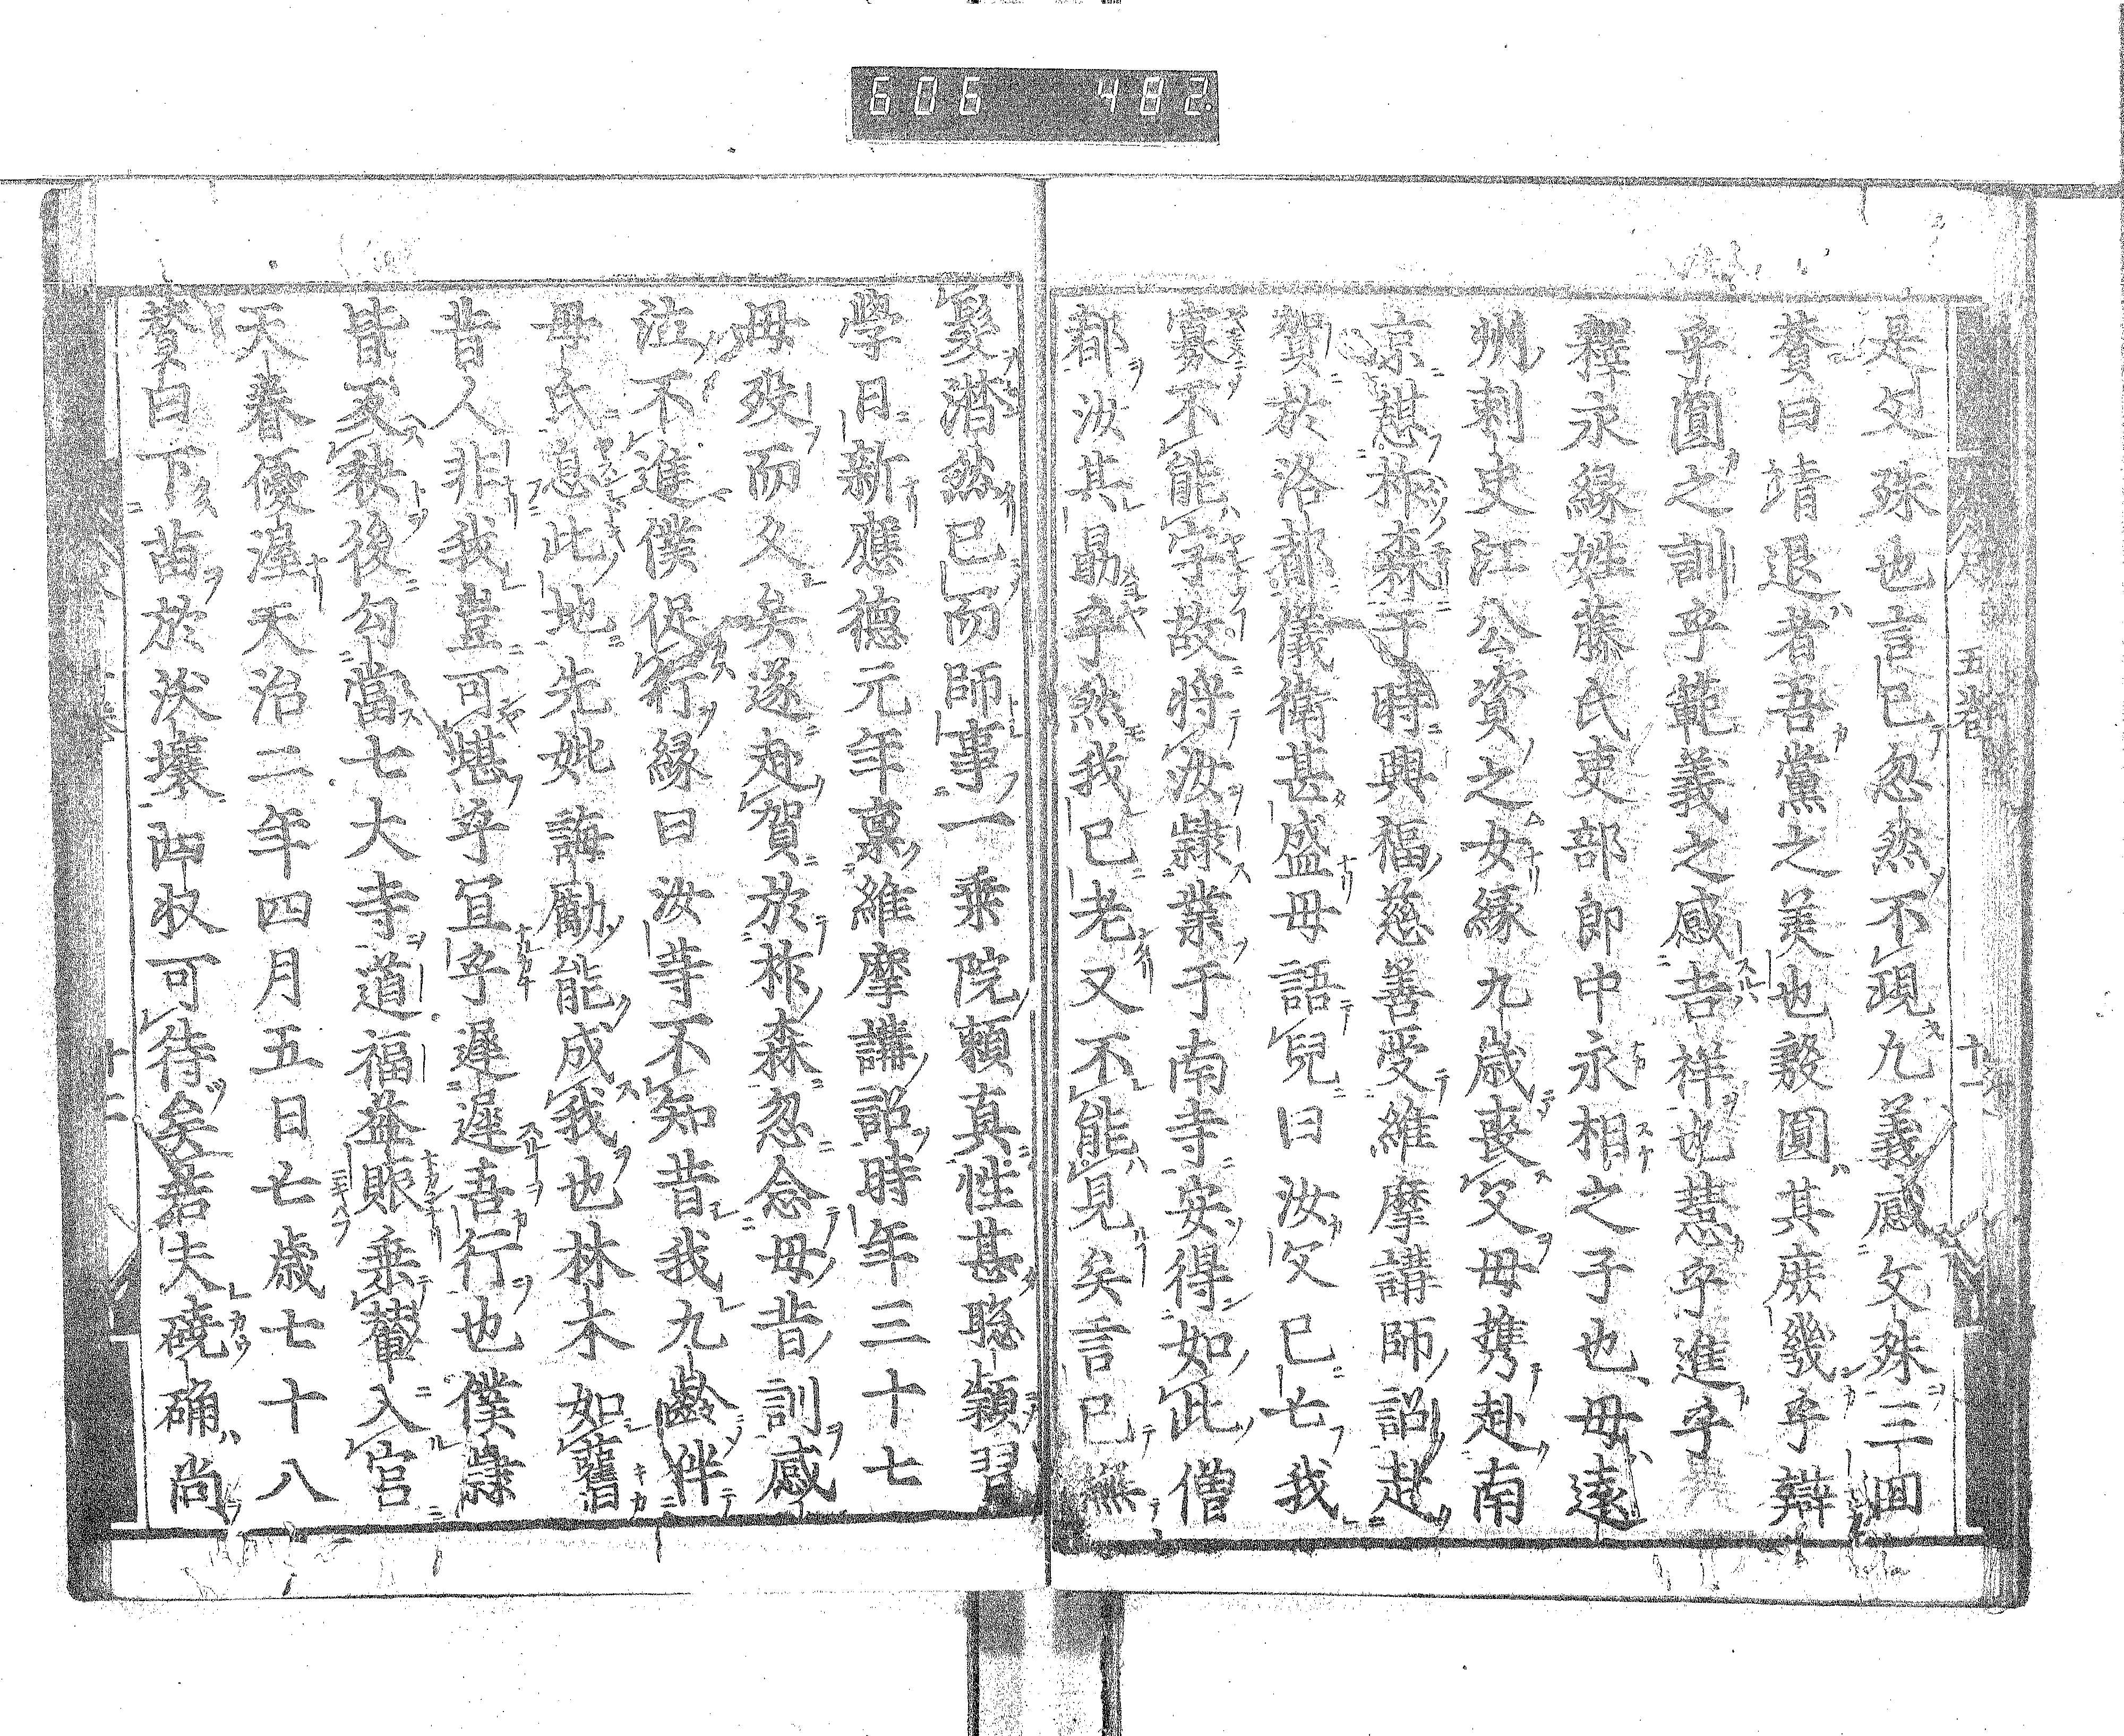 606 482
是文殊也言已忽然不現九義感文殊三回
賛曰靖退者吾黨之美也毅圓其庶幾乎辯
乎圓之訓乎範義之感吉祥也慧乎進乎
釋永緣姓藤氏吏部郎中永相之子也母遠
州刺史江公資之女緣九歲喪父母携赴南
京憩柞森于時興福慈善受維摩講師詔赴
賀於洛都儀衛甚盛母語兒曰汝父已亡我
寡不能字故將汝隷業于南寺安得如此僧
都汝其勗乎然我已老又不能見矣言已撫
髮潸然已而師事一乘院賴真性甚聰穎習
學日新應德元年稟維摩講詔時年三十七
母歿而久矣遂趣賀於柞森忽念母昔訓感
泣不進僕促行緣曰汝等不知昔我九齡伴
母氏息此地先妣誨勵能成我也林木如舊
昔人非我豈可堪乎宜乎遲遲吾行也僕隷
皆反袂後勾當七大寺道福益賑乘輦入宮
天眷優渥天治二年四月五日亡歲七十八
賛曰下苗於沃壤即收可待矣若夫磽确尚
五卷 十一
十二